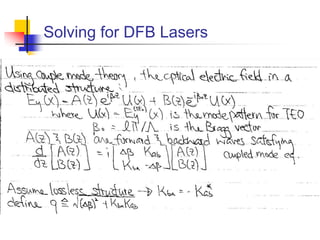 Solving for DFB Lasers
Using couple mode theory, the optical electric field in a
distributed structure:
Ey(x) = A(z) e^{iβ₀z} U(x) + B(z) e^{-iβ₀z} U(x)
where U(x) = Ey^{(TE0)}(x) is the mode pattern for TE0
β₀ = lπ/Λ is the Bragg vector
A(z) & B(z) are forward & backward waves satisfying
d/dz [A(z) B(z)] = i [Δβ Kab Kba -Δβ] [A(z) B(z)] coupled mode eq.
Assume lossless structure → Kba = - Kab*
define q ≜ √(Δβ)² + KbaKab